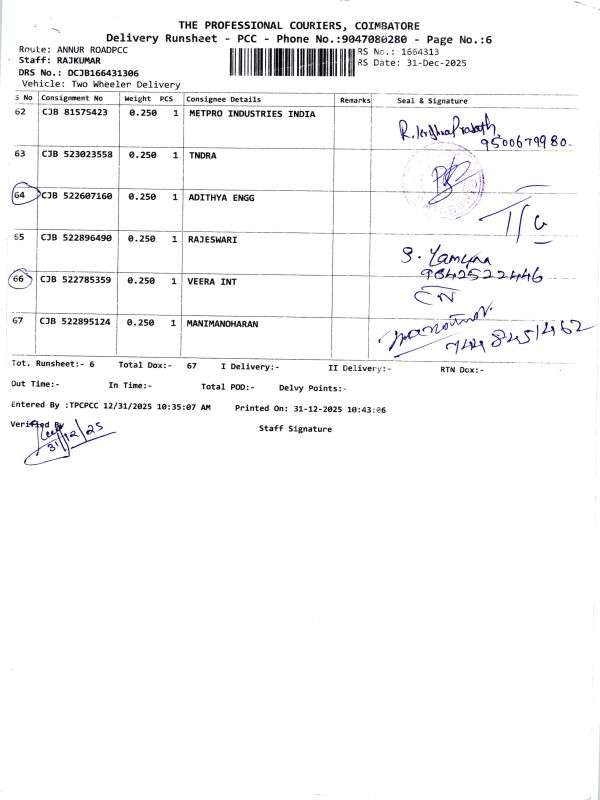 THE PROFESSIONAL COURIERS, COIMBATORE
Delivery Runsheet - PCC - Phone No.:9047080280 - Page No.:6
Route: ANNUR ROADPCC
RS No.: 1664313
Staff: RAJKUMAR
RS Date: 31-Dec-2025
DRS No.: DCJB166431306
Vehicle: Two Wheeler Delivery
S No Consignment No Weight PCS Consignee Details Remarks Seal & Signature
62 CJB 81575423 0.250 1 METPRO INDUSTRIES INDIA
9500679980.
63 CJB 523023558 0.250 1 TNDRA
64 CJB 522607160 0.250 1 ADITHYA ENGG
65 CJB 522896490 0.250 1 RAJESWARI S. Yamuna
9842522446
66 CJB 522785359 0.250 1 VEERA INT
67 CJB 522895124 0.250 1 MANIMANOHARAN
7448451462
Tot. Runsheet:- 6 Total Dox:- 67 I Delivery:- II Delivery:- RTN Dox:-
Out Time:- In Time:- Total POD:- Delvy Points:-
Entered By :TPCPCC 12/31/2025 10:35:07 AM Printed On: 31-12-2025 10:43:06
Verified By
Staff Signature
31/12/25